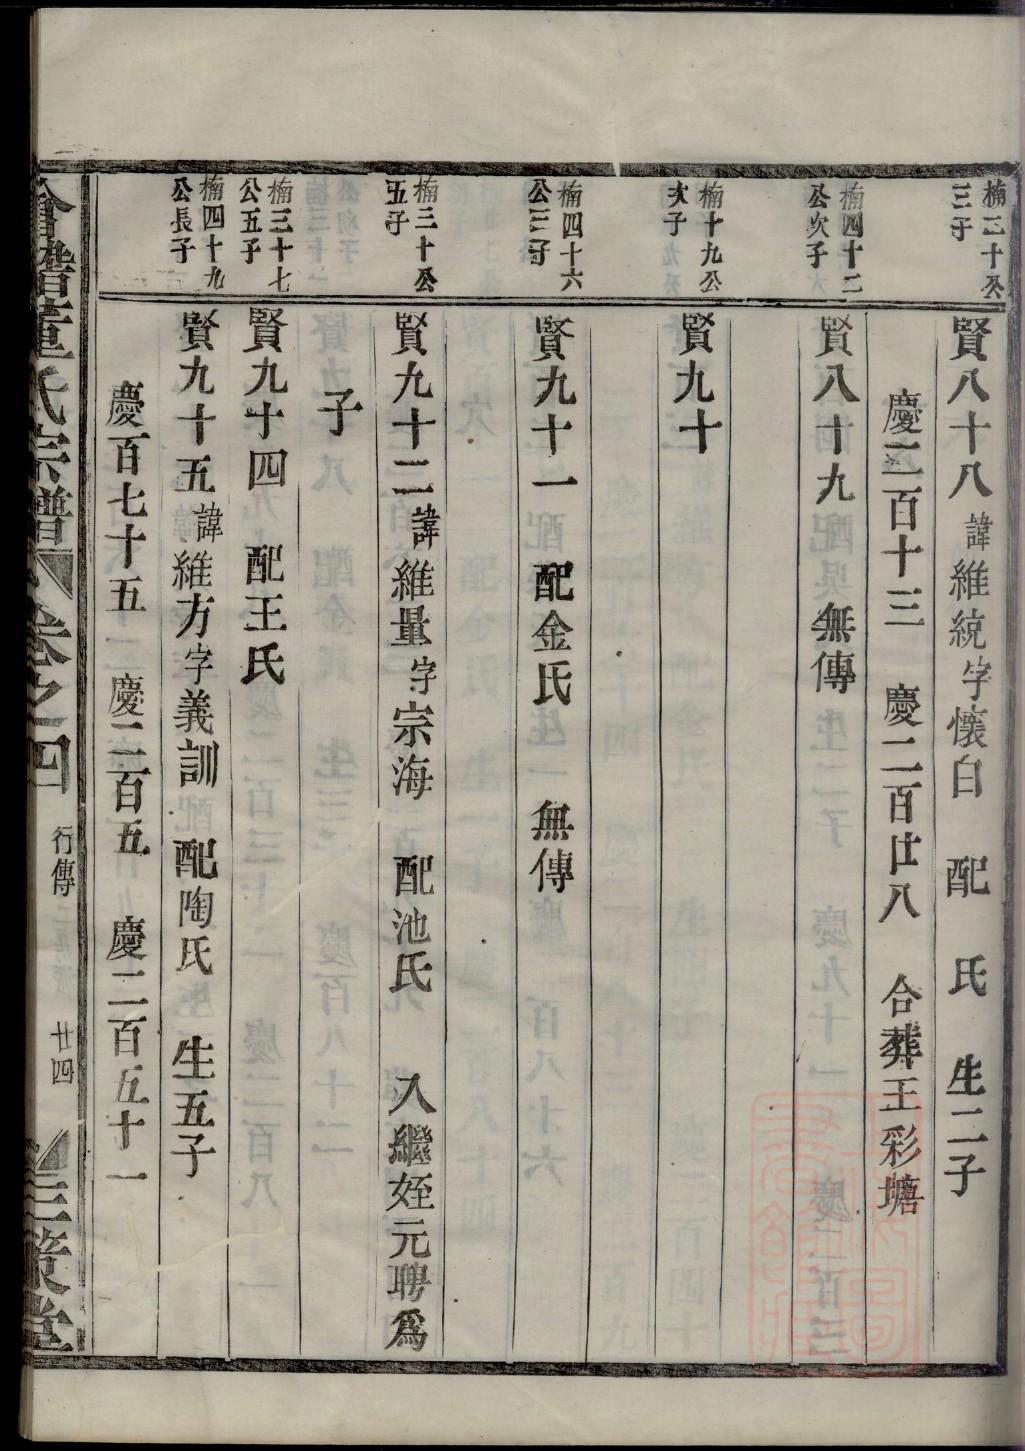 楠三十公
三子
賢八十八 諱維統字懷白 配 氏 生二子
慶二百十三 慶二百廿八 合葬王彩塘
楠四十二
公次子
賢八十九 無傳
楠十九公
次子
賢九十
楠四十六
公三子
賢九十一 配金氏 無傳
楠三十公
五子
賢九十二 諱維量字宗海 配池氏 入繼姪元聘為
子
楠三十七
公五子
賢九十四 配王氏
楠四十九
公長子
賢九十五 諱維方字義訓 配陶氏 生五子
慶百七十五 慶二百五 慶二百五十一
會稽董氏宗譜 卷之四 行傳 廿四 三策堂